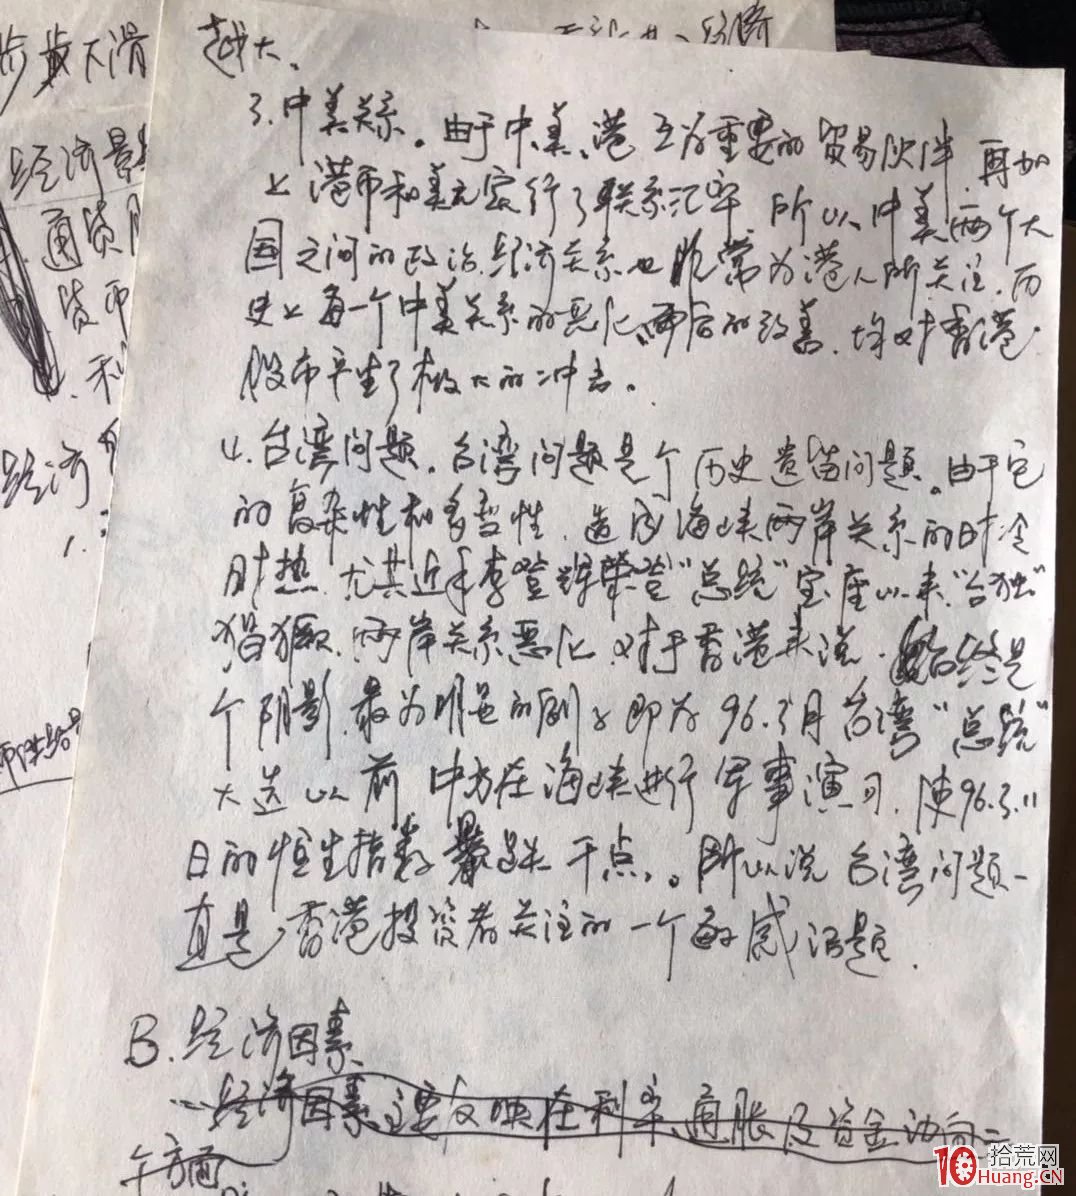 步步下滑
越大。
经济
3、中美关系。由于中、美、港互为重要的贸易伙伴,再加
上港币和美元实行了联系汇率,所以,中美两个大
国之间的政治、经济关系也非常为港人所关注,历
史上每一个中美关系的恶化、而后的改善,均对香港
股市产生了极大的冲击。
4、台湾问题。台湾问题是个历史遗留问题。由于它
的复杂性和多变性,造成海峡两岸关系的时冷
时热,尤其近年李登辉荣登“总统”宝座以来,“台独”
猖獗,两岸关系恶化,对于香港来说,始终是
个阴影,最为明显的例子即为96.3月台湾“总统”
大选以前中方在海峡进行军事演习,使96.3.11
日的恒生指数暴跌千点。所以说台湾问题一
直是香港投资者关注的一个敏感话题。
B.经济因素
经济因素主要反映在利率、通胀及资金动向三
个方面
经济景
通货
货币
利
经济
1.
10 拾荒网
Huang.CN